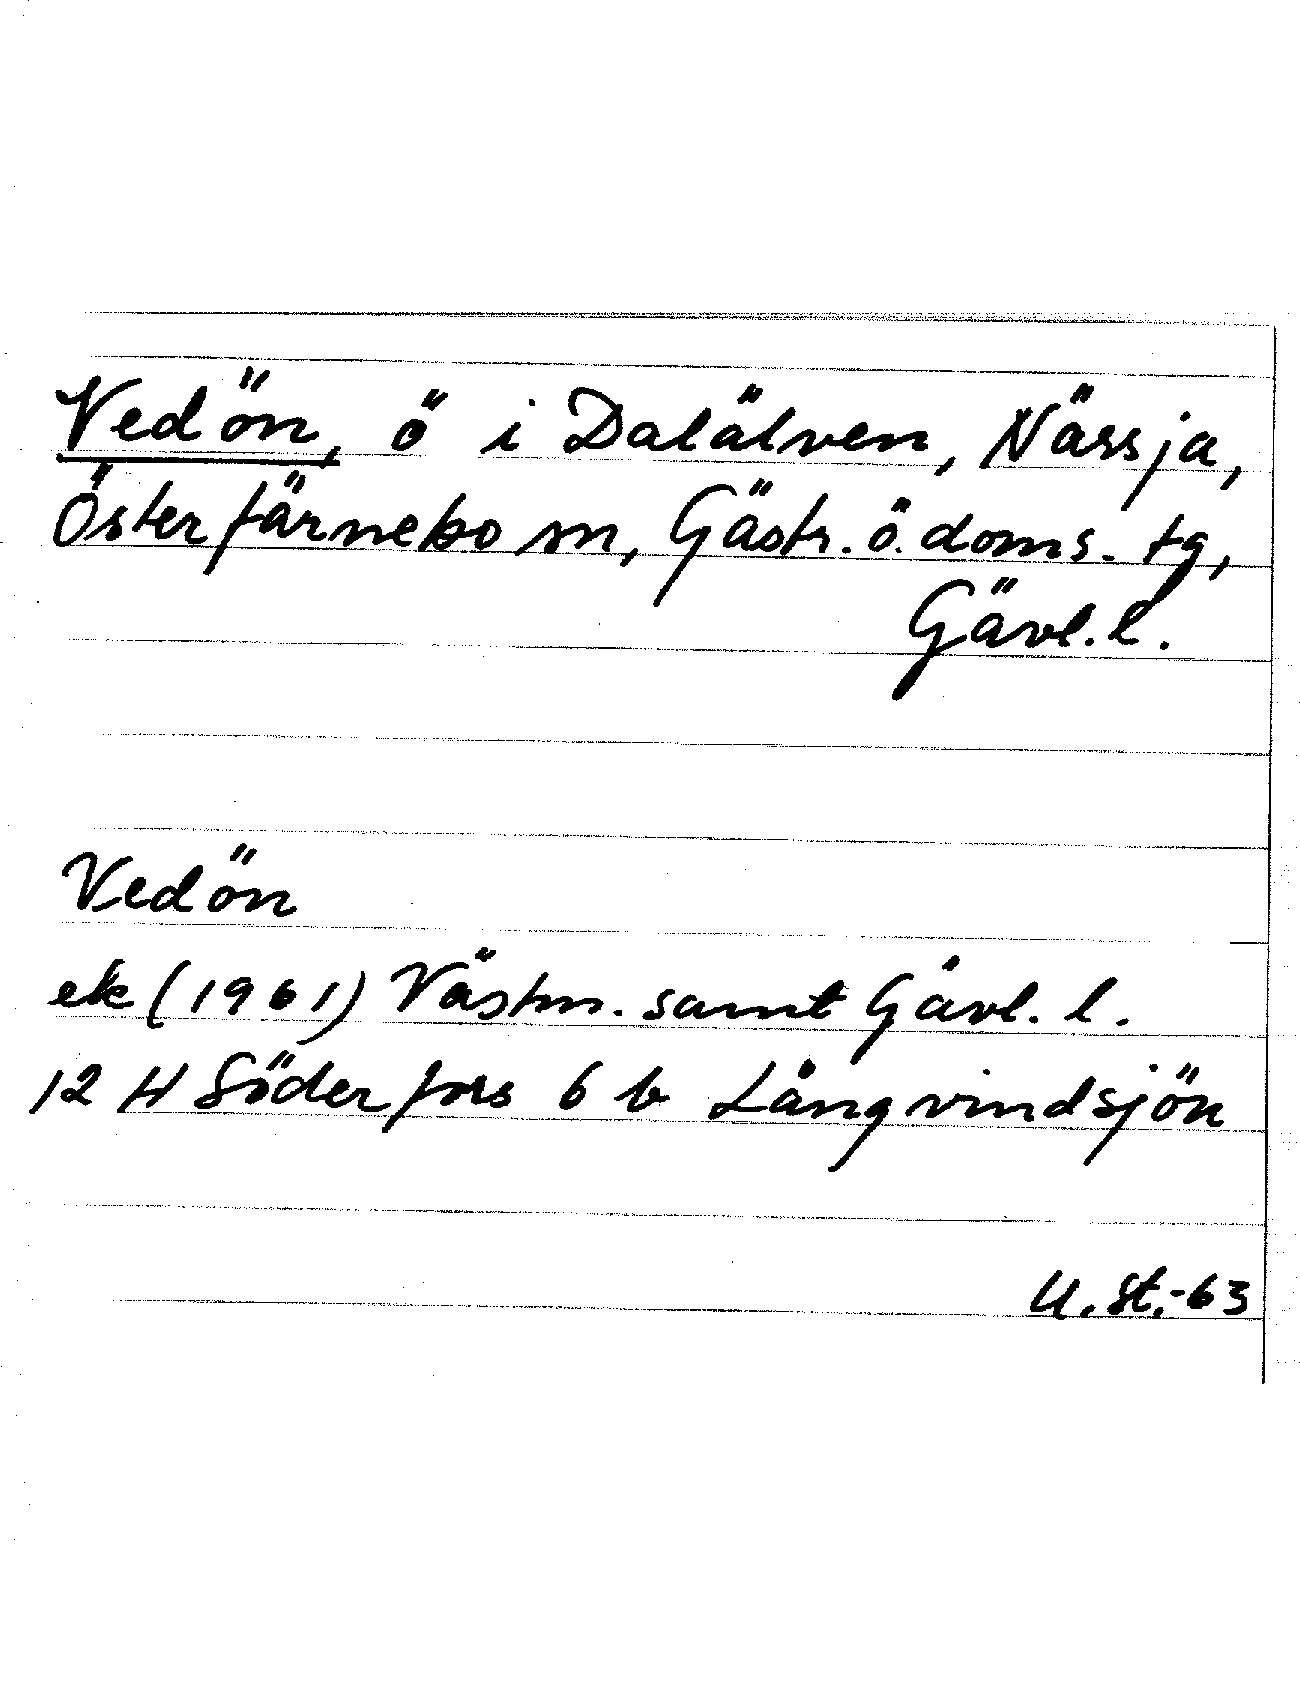 Vedön, ö i Dalälven, Nässja,
Österfärnebo sn, Gästr. ö. doms. tg,
Gävl. l.
Vedön
ek (1961) Västm. samt Gävl. l.
12 H Söderfors 6 b Långvindsjön
U. St.-63